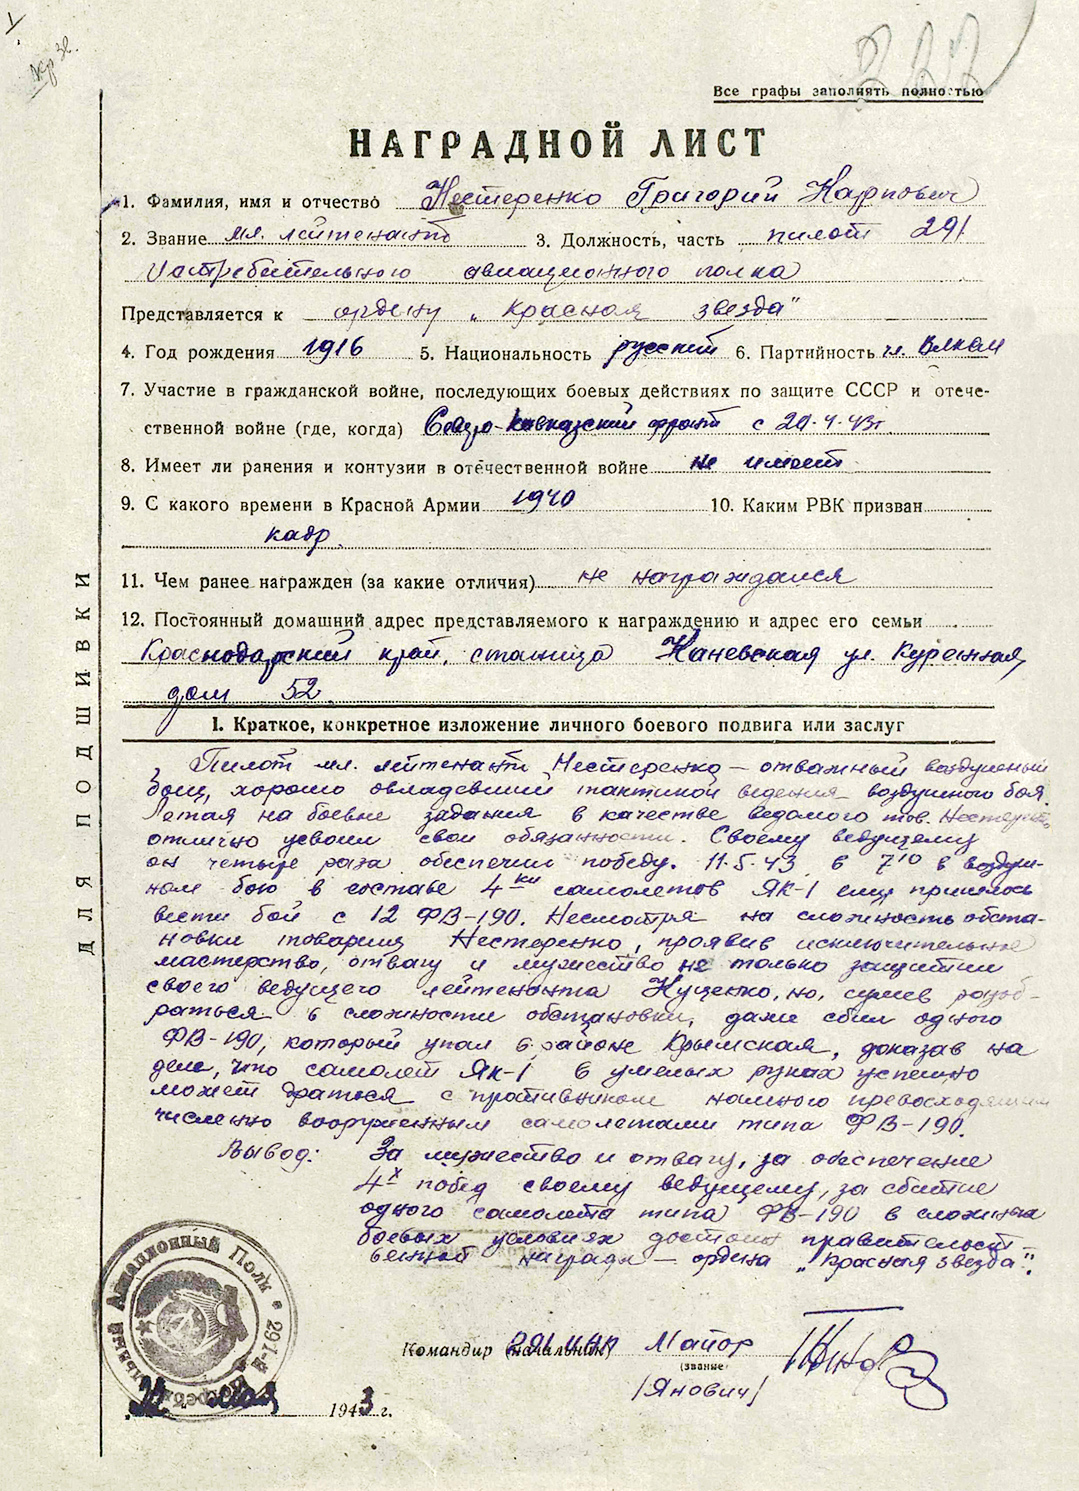 Все графы заполнять полностью
НАГРАДНОЙ ЛИСТ
1. Фамилия, имя и отчество Нестеренко Григорий Карпович
2. Звание мл. лейтенант 3. Должность, часть пилот 291
Истребительного авиационного полка
Представляется к ордену „Красная звезда"
4. Год рождения 1916 5. Национальность русский 6. Партийность чл. ВЛКСМ
7. Участие в гражданской войне, последующих боевых действиях по защите СССР и отече-
ственной войне (где, когда) Северо-Кавказский фронт с 20.4.43г.
8. Имеет ли ранения и контузии в отечественной войне не имеет
9. С какого времени в Красной Армии 1940 10. Каким РВК призван
кадр.
11. Чем ранее награжден (за какие отличия) не награждался
12. Постоянный домашний адрес представляемого к награждению и адрес его семьи
Краснодарский край, станица Каневская ул. Куренная,
дом 52
ДЛЯ ПОДШИВКИ
I. Краткое, конкретное изложение личного боевого подвига или заслуг
Пилот мл. лейтенант Нестеренко — отважный воздушный
боец, хорошо овладевший тактикой ведения воздушного боя.
Летая на боевые задания в качестве ведомого тов. Нестеренко
отлично усвоил свои обязанности. Своему ведущему
он четыре раза обеспечил победу. 11.5.43 в 7 10 в воздуш-
ном бою в составе 4ки самолетов Як-1 ему пришлось
вести бой с 12 ФВ-190. Несмотря на сложность обста-
новки товарищ Нестеренко, проявив исключительное
мастерство, отвагу и мужество не только защитил
своего ведущего лейтенанта Куценко, но, сумев разоб-
раться в сложности обстановки, даже сбил одного
ФВ-190, который упал в районе Крымская, доказав на
деле, что самолет Як-1 в умелых руках успешно
может драться с противником намного превосходящим
численно вооруженным самолетами типа ФВ-190.
Вывод: За мужество и отвагу, за обеспечение
4х побед своему ведущему, за сбитие
одного самолета типа ФВ-190 в сложных
боевых условиях достоин правительст-
венной награды — ордена „Красная звезда".
Командир (начальник) 291 ИАП Майор
(звание)
/Янович/
291-й Истребительный Авиационный Полк
22 мая 1943 г.